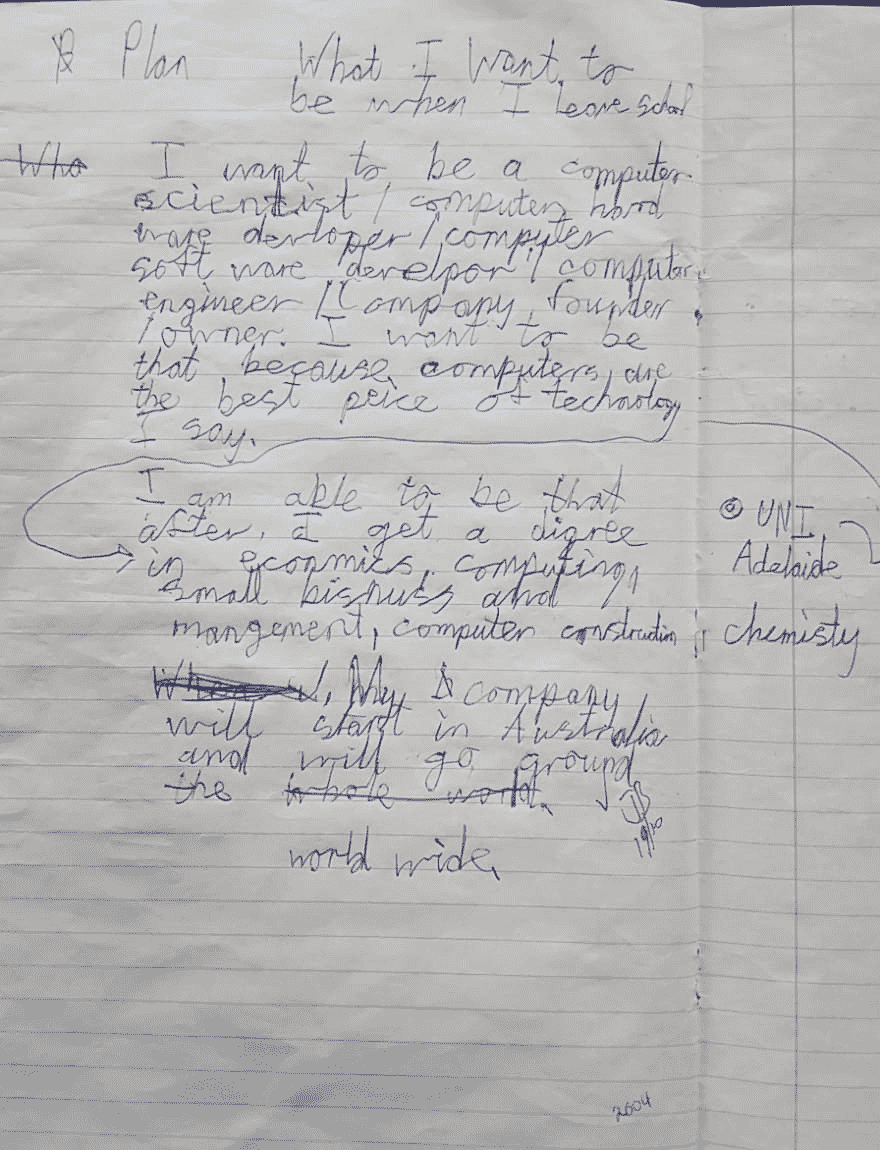 Plan What I Want to
be when I leave school
Who I want to be a computer
scientist / computer hard
ware devloper / computer
soft ware develpor / computer
engineer / Company founder
/ owner. I want to be
that because computers are
the best peice of technology
I say.
I am able to be that
after I get a digree
in econmics, computing,
small bisnuss and
mangement, computer construction, chemisty
@ UNI
Adelaide
My company
will start in Australia
and will go ground
the whole world.
JB
19/10
world wide.
2004